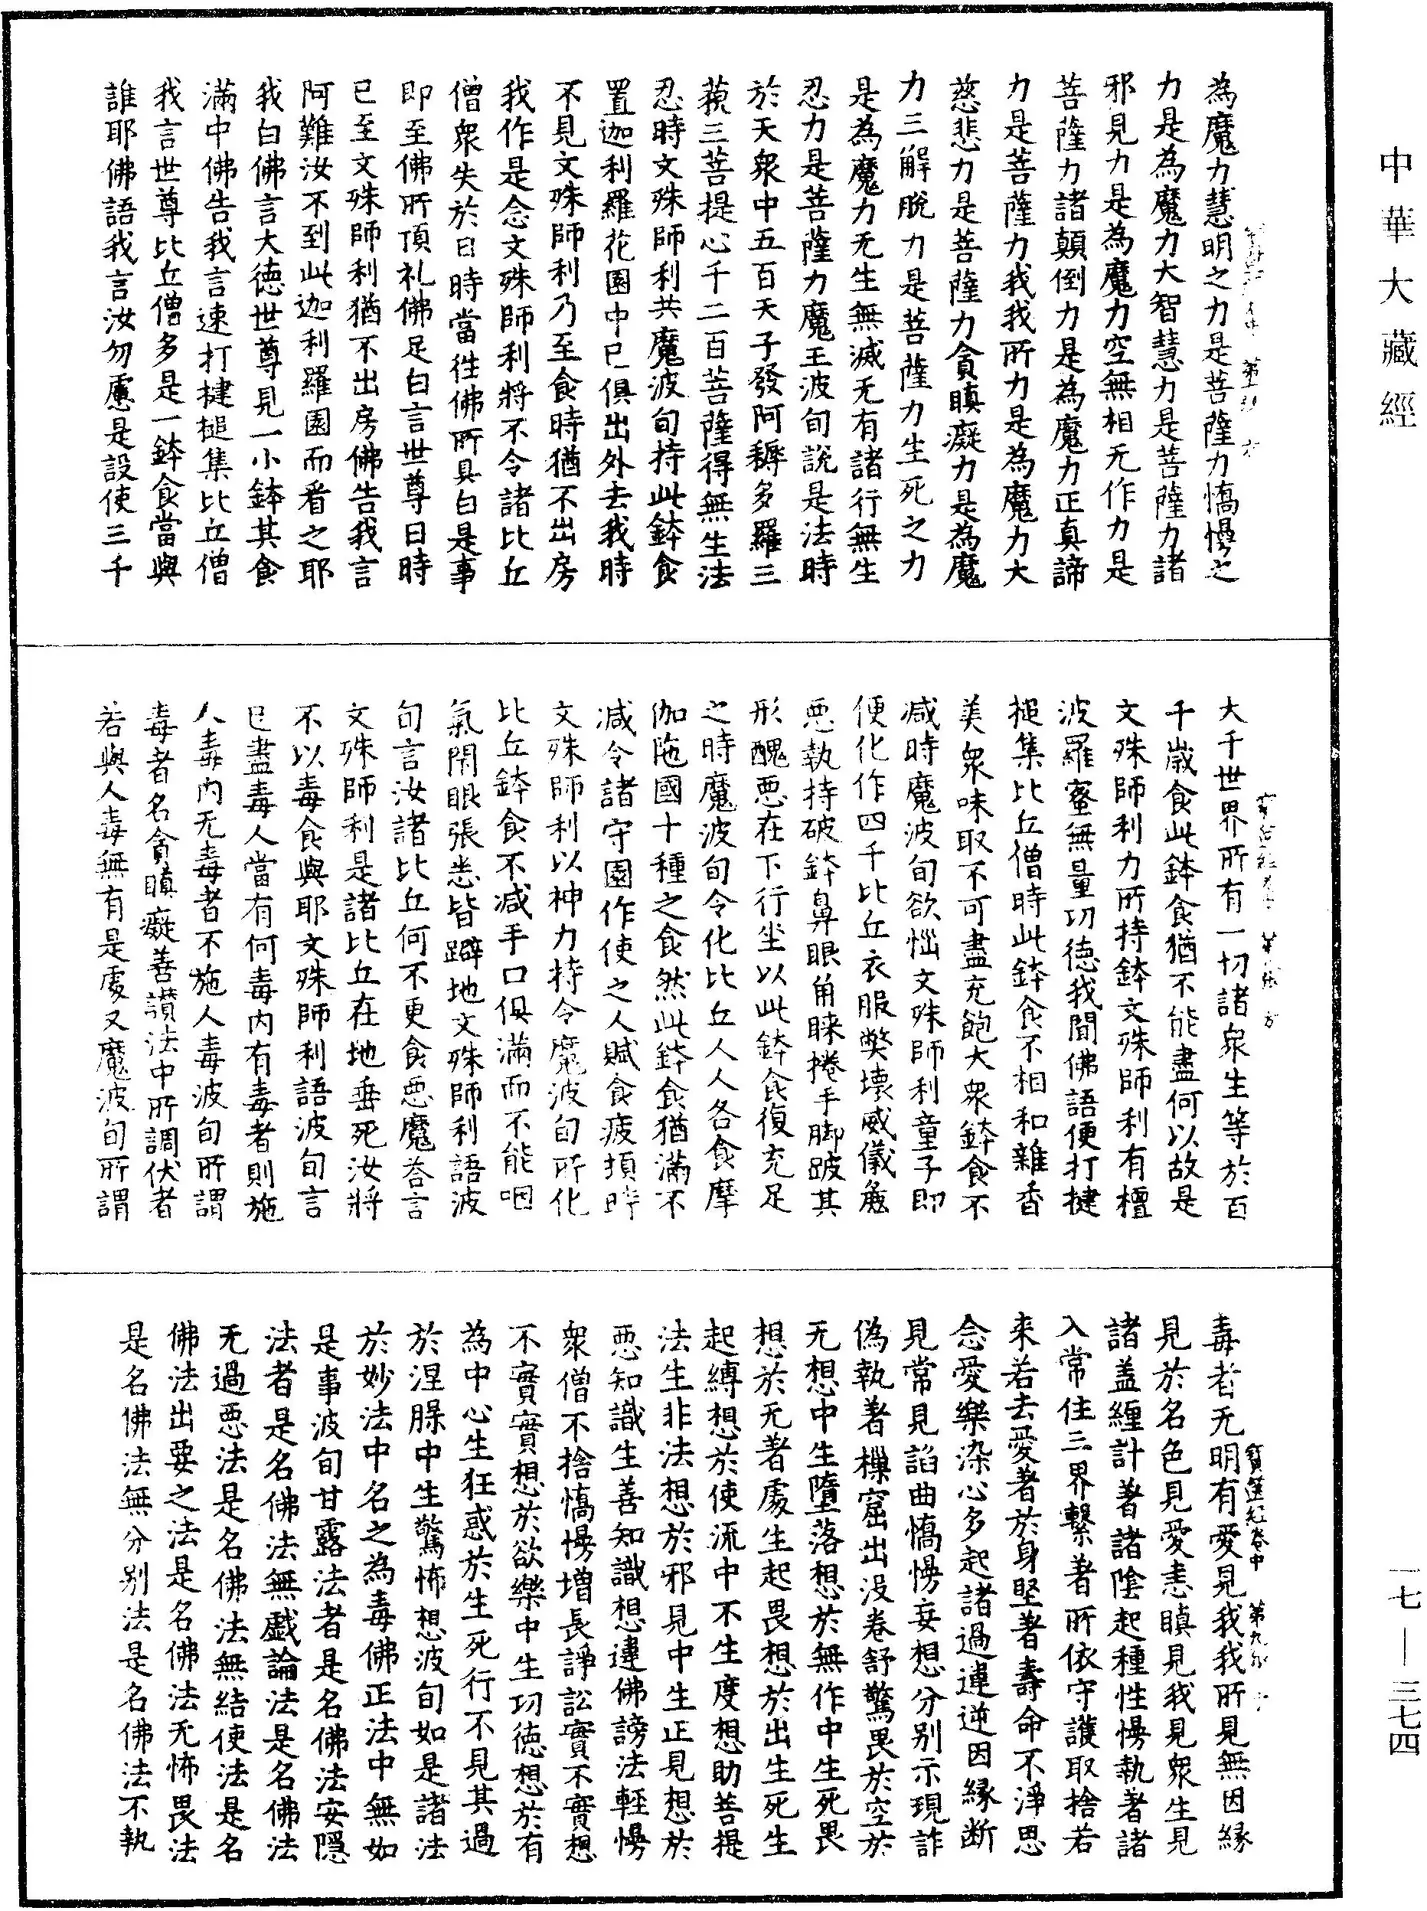 中華大藏經
為魔力慧明之力是菩薩力憍慢之
力是為魔力大智慧力是菩薩力諸
邪見力是為魔力空無相无作力是
菩薩力諸顛倒力是為魔力正真諦
力是菩薩力我我所力是為魔力大
慈悲力是菩薩力貪瞋癡力是為魔
力三解脫力是菩薩力生死之力
是為魔力无生無滅无有諸行無生
忍力是菩薩力魔王波旬說是法時
於天衆中五百天子發阿耨多羅三
藐三菩提心千二百菩薩得無生法
忍時文殊師利共魔波旬持此鉢食
置迦利羅花園中已俱出外去我時
不見文殊師利乃至食時猶不出房
我作是念文殊師利將不令諸比丘
僧衆失於日時當徃佛所具白是事
即至佛所頂礼佛足白言世尊日時
已至文殊師利猶不出房佛告我言
阿難汝不到此迦利羅園而看之耶
我白佛言大德世尊見一小鉢其食
滿中佛告我言速打揵槌集比丘僧
我言世尊比丘僧多是一鉢食當與
誰耶佛語我言汝勿慮是設使三千
大千世界所有一切諸衆生等於百
千歲食此鉢食猶不能盡何以故是
文殊師利力所持鉢文殊師利有檀
波羅蜜無量功德我聞佛語便打揵
槌集比丘僧時此鉢食不相和雜香
美衆味取不可盡充飽大衆鉢食不
減時魔波旬欲惱文殊師利童子即
便化作四千比丘衣服弊壞威儀麁
惡執持破鉢鼻眼角睞捲手脚跛其
形醜惡在下行坐以此鉢食復充足
之時魔波旬令化比丘人人各食摩
伽陁國十種之食然此鉢食猶滿不
減令諸守園作使之人賦食疲頓時
文殊師利以神力持令魔波旬所化
比丘鉢食不減手口俱滿而不能咽
氣閇眼張悉皆躃地文殊師利語波
旬言汝諸比丘何不更食惡魔荅言
文殊師利是諸比丘在地垂死汝將
不以毒食與耶文殊師利語波旬言
已盡毒人當有何毒內有毒者則施
人毒內无毒者不施人毒波旬所謂
毒者名貪瞋癡善讃法中所調伏者
若與人毒無有是處又魔波旬所謂
寶篋經卷中 第九張
毒者无明有愛見我我所見無因緣
見於名色見愛恚瞋見我見衆生見
諸盖纏計著諸陰起種性慢執著諸
入常住三界繫著所依守護取捨若
来若去愛著於身堅著壽命不淨思
念愛樂染心多起諸過違逆因緣断
見常見諂曲憍慢妄想分別示現詐
偽執著樔窟出没卷舒驚畏於空於
无想中生墮落想於無作中生死畏
想於无著處生起畏想於出生死生
起縛想於使流中不生度想助菩提
法生非法想於邪見中生正見想於
惡知識生善知識想違佛謗法輕慢
衆僧不捨憍慢增長諍訟實不實想
不實實想於欲樂中生功德想於有
為中心生狂惑於生死行不見其過
於涅槃中生驚怖想波旬如是諸法
於妙法中名之為毒佛正法中無如
是事波旬甘露法者是名佛法安隱
法者是名佛法無戲論法是名佛法
无過惡法是名佛法無結使法是名
佛法出要之法是名佛法无怖畏法
是名佛法無分别法是名佛法不執
一七—三七四